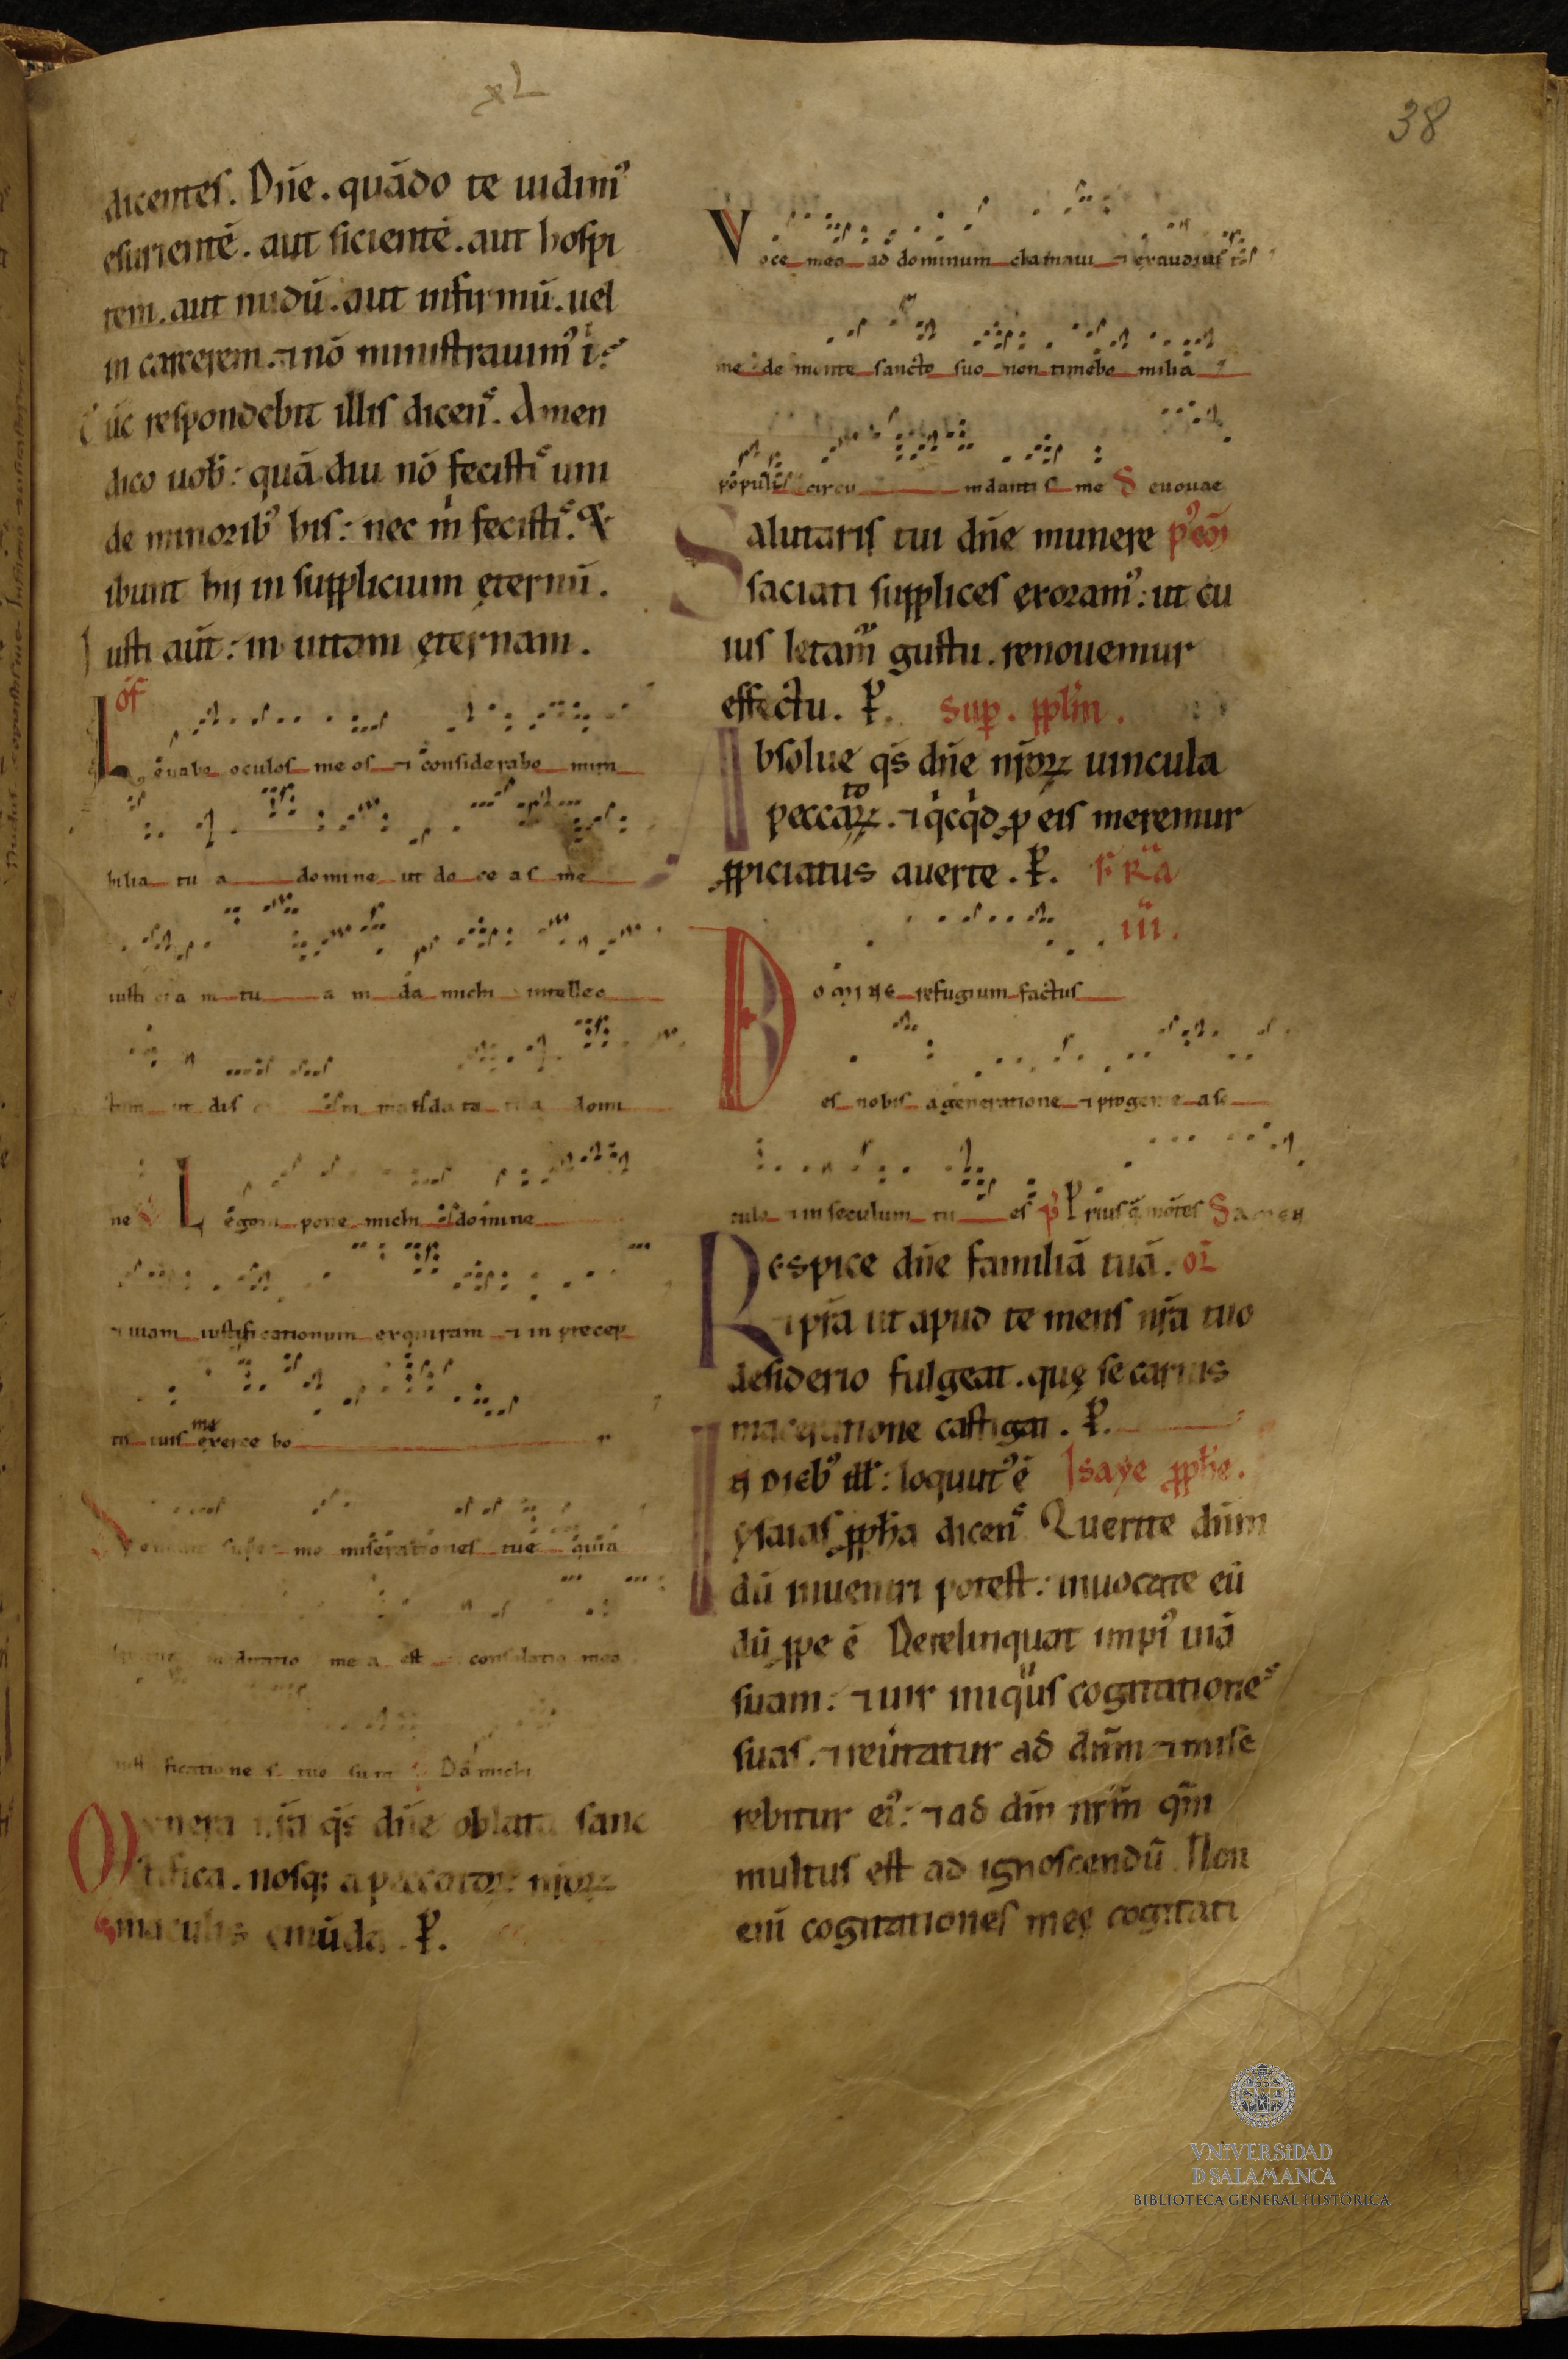 xL
38
dicentes. Dn̄e. quādo te uidim᷒
esurientē. aut sicientē. aut hospi
tem. aut nudū. aut infirmū. uel
in carcerem. ⁊ nō ministrauim᷒ t̄.
Tūc respondebit illis dicen᷒. Amen
dico uob̄: quādiu nō fecisti᷒ uni
de minorib᷒ his: nec m̍ fecisti᷒. &
ibunt hij in supplicium ęternū.
Iusti aut̄: in uitam ęternam.
of̄
Leuabo oculos meos ⁊ considerabo mira
bilia tua domine ut doceas me
iusticiam tuam da michi intellec
tum ut discam mandata tua domi
ne Legem pone michi domine
⁊ uiam iustificationum exquiram ⁊ in precep
tis tuis me exercebor
Veniant super me miserationes tue quia
meditatio mea est consolatio mea
iustificationes tuas Da michi
Munera nr̄a q̄s dn̄e oblata sanc
tifica. nosq; a peccatoꝝ nr̄oꝝ
maculis emūda. P̄.
Voce mea ad dominum clamaui ⁊ exaudiuit
me de monte sancto suo non timebo milia
populi circumdantis me euouae
Salutaris tui dn̄e munere p᷒ cō
saciati supplices exoram᷒: ut cu
ius letam̄ gustu. renouemur
effectu. P̄. Sup. pplm̄.
Absolue q̄s dn̄e nr̄oꝝ uincula
peccatoꝝ. ⁊ q̍cq̍d ꝓ eis meremur
ꝓpiciatus auerte. P̄. F̄ R̄a
iii.
Domine refugium factus
es nobis a generatione ⁊ progenie a se
culo ⁊ in seculum tu es p̄ Prius q̄ mōtes S amen
Respice dn̄e familiā tuā. oī
⁊ p̄sta ut apud te mens nr̄a tuo
desiderio fulgeat. quę se carnis
maceratione castigat. P̄.
In dieb᷒ ill̄: loquut᷒ ē Isaye ꝓph̄e.
ysaias ꝓph̄a dicen᷒ Querite dn̄m
dū inueniri potest: inuocate eū
dū ꝓpe ē Derelinquat impi᷒ uiā
suam: ⁊ uir iniqus cogitatione᷒
suas. ⁊ reūtatur ad dn̄m ⁊ mise
rebitur ei᷒: ⁊ ad dm̄ nr̄m qm̄
multus est ad ignoscendū Non
enī cogitationes meę cogitati
VNIVERSIDAD
D SALAMANCA
BIBLIOTECA GENERAL HISTÓRICA